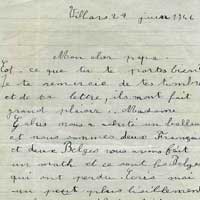 Villars 29 juin 1946
Mon cher papa.
Est-ce que tu te portes bien
Je te remercie de tes timbres
et de ta lettre, ils m'ont fait
grand plaisir. Madame
nous a acheté un ballon
et nous sommes deux Français
et deux Belges nous avons fait
un match et ce sont les Belges
qui ont perdu. Ecris moi
un petit plus lisiblement